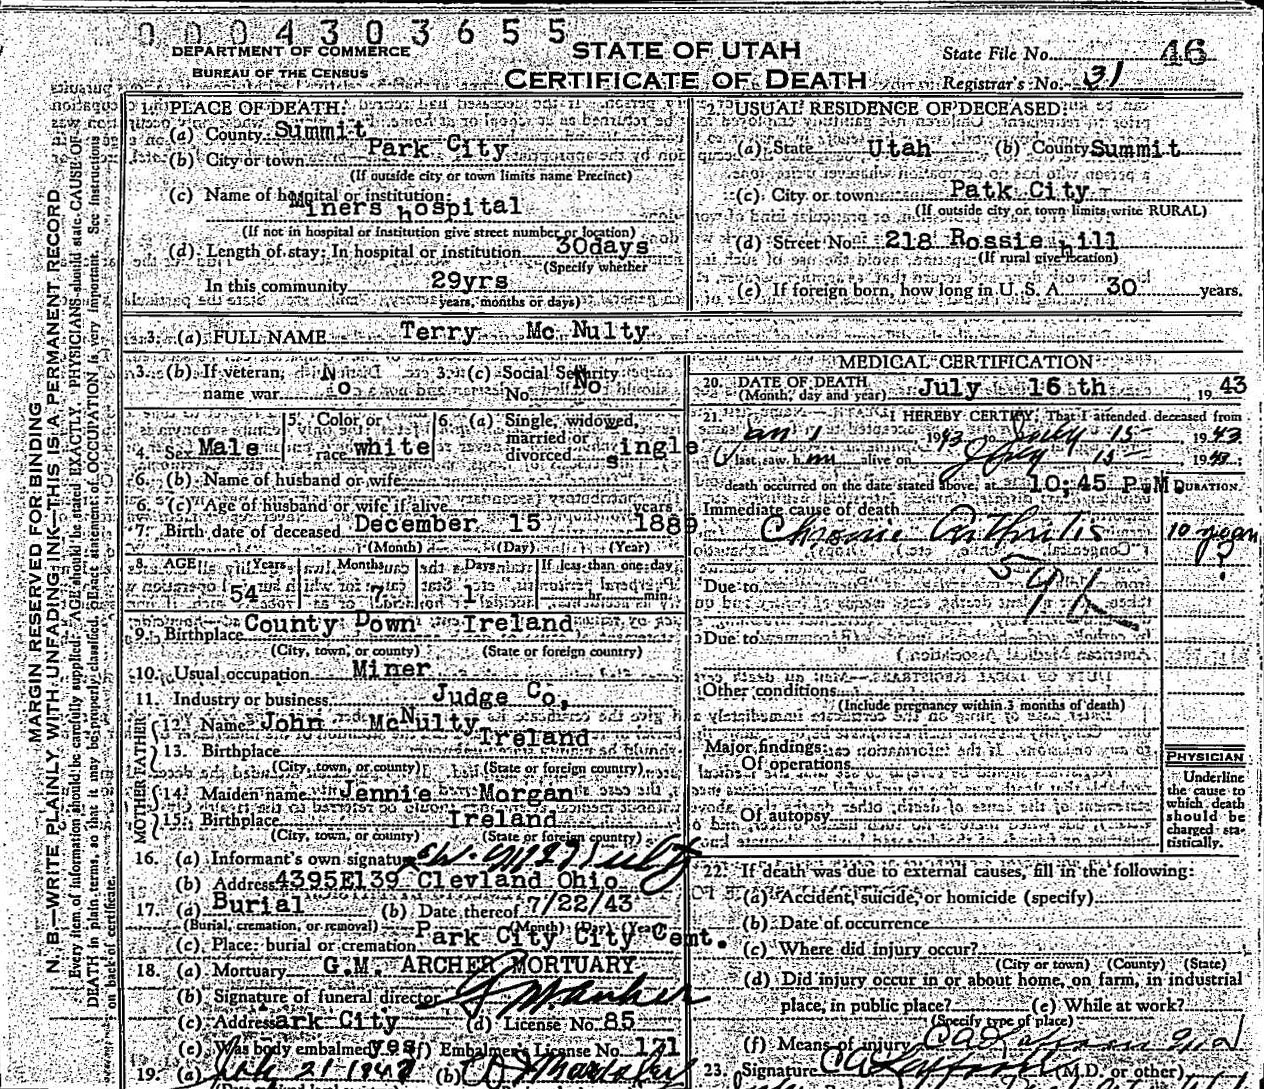 0004303655
DEPARTMENT OF COMMERCE
BUREAU OF THE CENSUS
STATE OF UTAH
CERTIFICATE OF DEATH
State File No. 46
Registrar's No. 31
MARGIN RESERVED FOR BINDING
N. B.—WRITE PLAINLY WITH UNFADING INK—THIS IS A PERMANENT RECORD
Every item of information should be carefully supplied. AGE should be stated EXACTLY. PHYSICIANS should state CAUSE OF
DEATH in plain terms, so that it may be properly classified. Exact statement of OCCUPATION is very important. See instructions
on back of certificate.
1. PLACE OF DEATH
(a) County Summit
(b) City or town Park City
(If outside city or town limits name Precinct)
(c) Name of hospital or institution:
Miners hospital
(If not in hospital or institution give street number or location)
(d) Length of stay: In hospital or institution 30days
(Specify whether
In this community 29yrs
years, months or days)
2. USUAL RESIDENCE OF DECEASED:
(a) State Utah (b) County Summit
(c) City or town Patk City
(If outside city or town limits write RURAL)
(d) Street No. 218 Rossie hill
(If rural give location)
(e) If foreign born, how long in U. S. A. 30 years.
3. (a) FULL NAME Terry Mc Nulty
3. (b) If veteran, name war No
3. (c) Social Security No. No
4. Sex Male
5. Color or race white
6. (a) Single, widowed, married or divorced single
6. (b) Name of husband or wife
6. (c) Age of husband or wife if alive years
7. Birth date of deceased December 15 1889
(Month) (Day) (Year)
8. AGE Years Months Days If less than one day
54 7 1 hr. min.
9. Birthplace County Down Ireland
(City, town, or county) (State or foreign country)
10. Usual occupation Miner
11. Industry or business Judge Co,
FATHER
12. Name John McNulty
13. Birthplace Ireland
(City, town, or county) (State or foreign country)
MOTHER
14. Maiden name Jennie Morgan
15. Birthplace Ireland
(City, town, or county) (State or foreign country)
16. (a) Informant's own signature
(b) Address 4395E139 Clevland Ohio
17. (a) Burial (b) Date thereof 7/22/43
(Burial, cremation, or removal) (Month) (Day) (Year)
(c) Place: burial or cremation Park City City Cemt.
18. (a) Mortuary G.M. ARCHER MORTUARY
(b) Signature of funeral director
(c) Address ark City (d) License No. 85
(e) Was body embalmed yes (f) Embalmer's License No. 121
19. (a) (b)
MEDICAL CERTIFICATION
20. DATE OF DEATH
(Month, day and year) July 16 th, 1943
21. I HEREBY CERTIFY, That I attended deceased from
Jan 1, 1943 to July 15 1943
I last saw him alive on July 15 1943;
death occurred on the date stated above, at 10;45 P.M. DURATION
Immediate cause of death
Chronic Arthritis 10 years
?
Due to
Due to
Other conditions
(Include pregnancy within 3 months of death)
Major findings:
Of operations
Of autopsy
PHYSICIAN
Underline
the cause to
which death
should be
charged sta-
tistically.
22. If death was due to external causes, fill in the following:
(a) Accident, suicide, or homicide (specify)
(b) Date of occurrence
(c) Where did injury occur?
(City or town) (County) (State)
(d) Did injury occur in or about home, on farm, in industrial
place, in public place? (e) While at work?
(Specify type of place)
(f) Means of injury
23. Signature (M.D. or other)